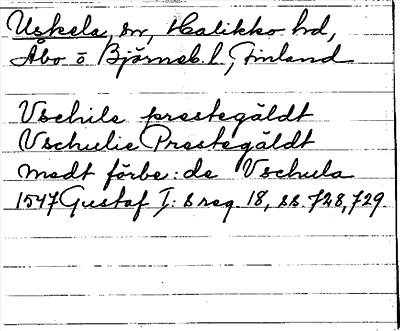 Uskela, sn, Halikko hd,
Åbo o Björneb. l., Finland
Vschile prestegäldt
Vschulie Prestegäldt
medt förbe:de Vschula
1547 Gustaf I: s reg. 18, ss. 728, 729.